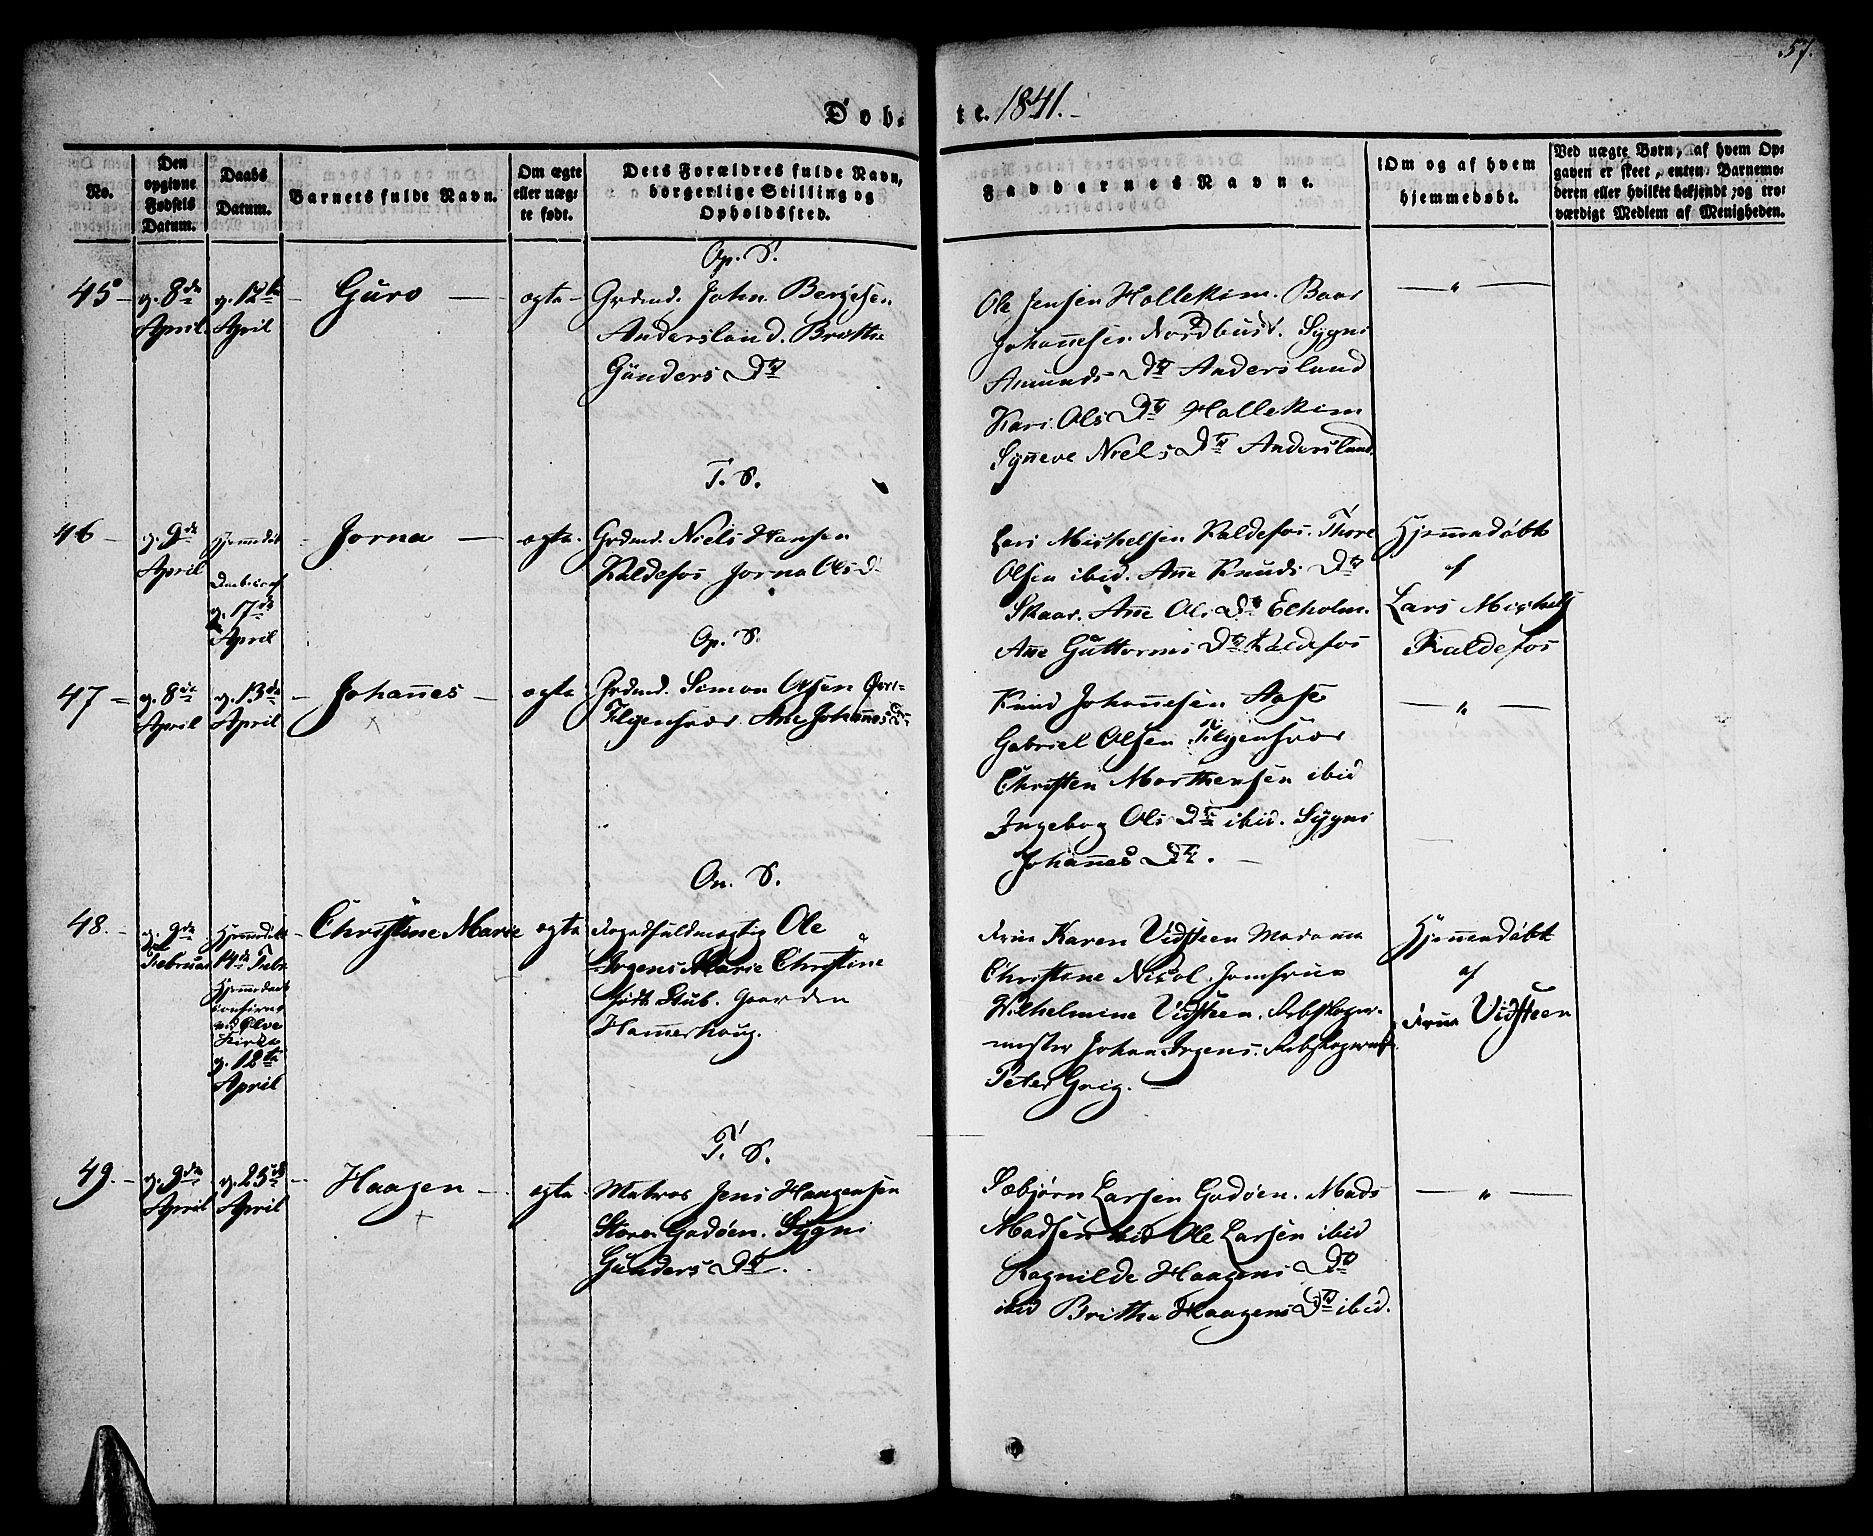 57.
Døb-te. 1841.
No.
Den opgivne Fødsels Datum.
Daabs Datum.
Barnets fulde Navn.
Om ægte eller uægte født.
Dets Forældres fulde Navn, borgerlige Stilling og Opholdssted.
Faddernes Navne.
Om og af hvem hjemmedøbt.
Ved uægte Børn, af hvem Opgaven er skeet, enten Barnemoderen eller hvilket bekjendt og troværdigt Medlem af Menigheden.
Op. S.
45 d. 8de April d. 12te April Guro ægte
Grdmd. John Bergesen
Andersland. Brithe
Gunders Dtr
Ole Jensen Hollekim. Baar
Johannesen Nordhuus. Sygni
Amunds Dtr Andersland
Kari Ols Dtr Hollekim
Synneve Niels Dtr Andersland
T. S.
46 d. 9de April Hjemmedøbt
d. 17de April Jorna ægte
Grdmd. Niels Hansen
Kaldefos Jorna Ols D.
Lars Michelsen Kaldefos. Thore
Olsen ibid. Anne Knuds Dtr
Skaar. Anne Ols Dtr Eeholm.
Anne Guttorms Dtr Kaldefos
Hjemmedøbt
af
Lars Michels
Kaldefos
Op. S.
47 d. 8de April d. 13de April Johannes ægte
Grdmd. Simon Olsen
Anne Johannes Dtr
Knud Johannesen Aase
Gabriel Olsen
Christen Marthensen ibid
Ingebor Ols Dtr ibid. Sygni
Johannes Dtr.
On. S.
48. d. 9de Februar Hjemmedøbt
14de Febr.
Hjemmedaab
confirm.
ved Ølve
Kirke
d. 12te
April
Christine Marie ægte
Fogedfuldmægtig Ole
Irgens Marie Christine
født Stub. Gaarden
Hammerhoug.
Frue Karen Vidsteen Madamme
Christine Nicol. Jomfrue
Wilhelmine Vidsteen. Rebslager-
mester Johan Irgens. Rebslagermst.
Peter Grig.
Hjemmedøbt
af
Frue Vidsteen
T. S.
49. d. 9de April d. 25de April Haagen ægte
Matros Jens Haagensen
Store Godøen. Sygni
Gunders Dtr.
Sæbjørn Larsen Godøen. Mads
Madsen ibid Ole Larsen ibid
Ragnilde Haagens Dtr
ibid Brithe Haagens Dtr ibid.